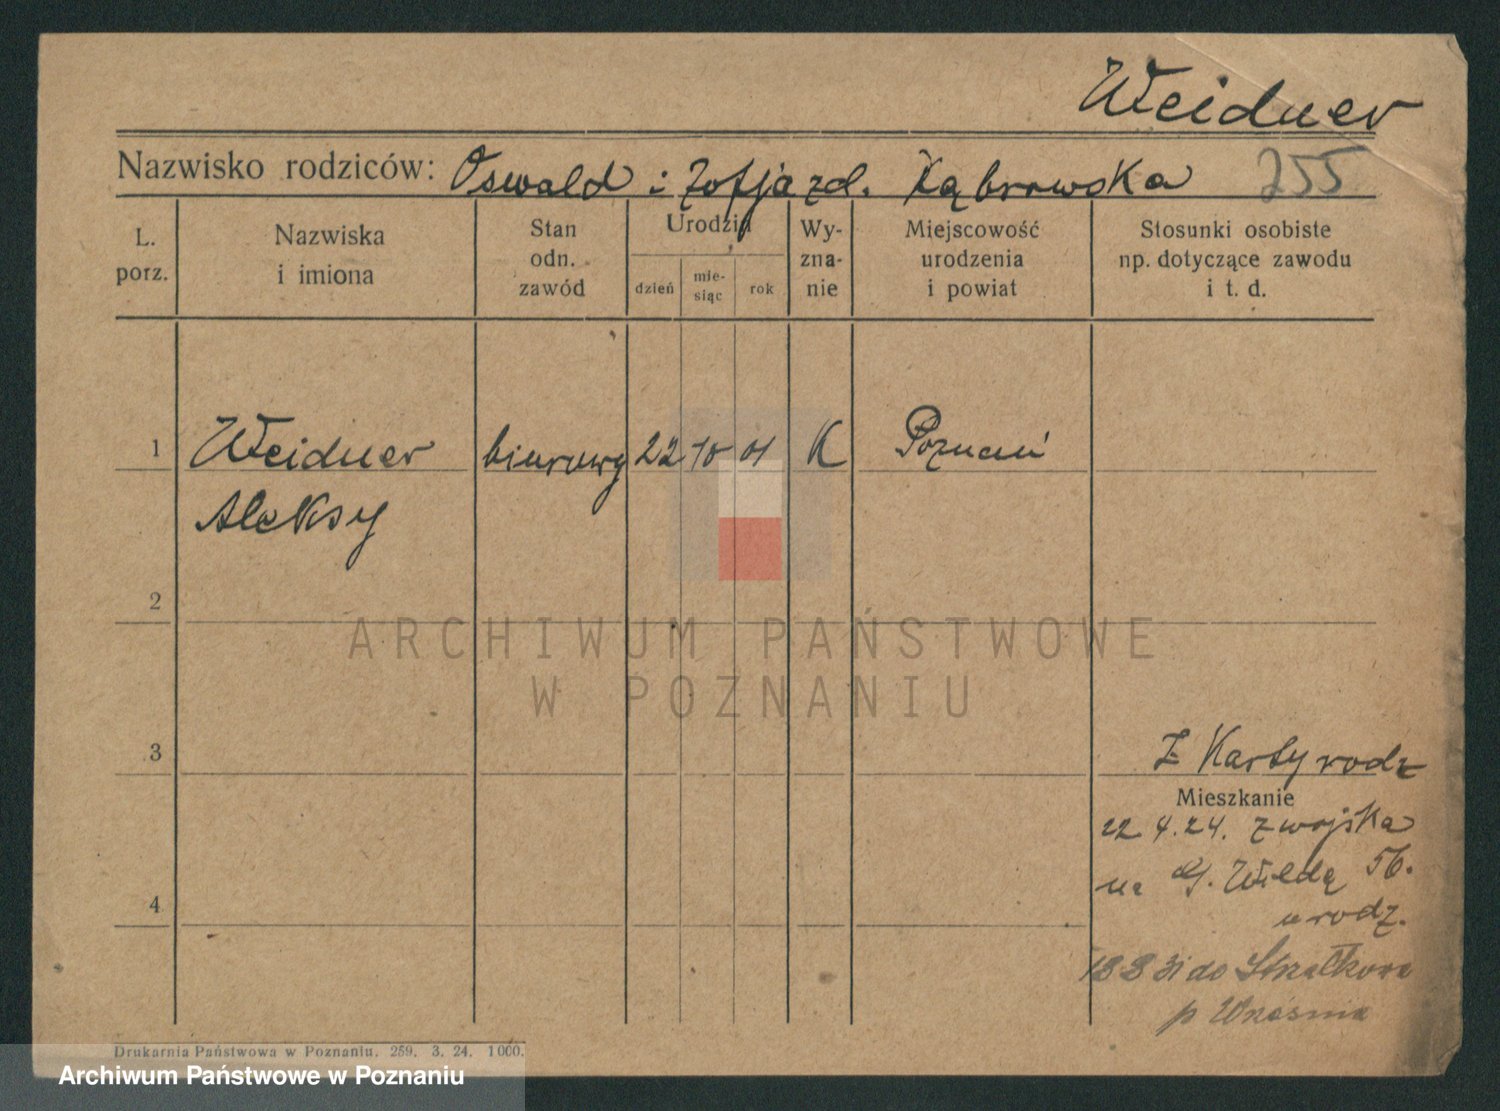 Weidner
Nazwisko rodziców: Oswald i Zofja zd. Kąbrowska
255
L. porz.
Nazwiska i imiona
Stan odn. zawód
Urodzin
dzień
mie-
siąc
rok
Wy-
zna-
nie
Miejscowość urodzenia i powiat
Stosunki osobiste
np. dotyczące zawodu
i t. d.
1 Weidner biurowy 22 10 01 K Poznań
Aleksy
2
ARCHIWUM PAŃSTWOWE
W POZNANIU
3
Z Karty rodz
Mieszkanie
22 4.24. z wojska
na G. Wildą 56.
u rodz.
4
18 8 31 do Strzałkowa
p Września
Drukarnia Państwowa w Poznaniu. 259. 3. 24. 1000.
Archiwum Państwowe w Poznaniu